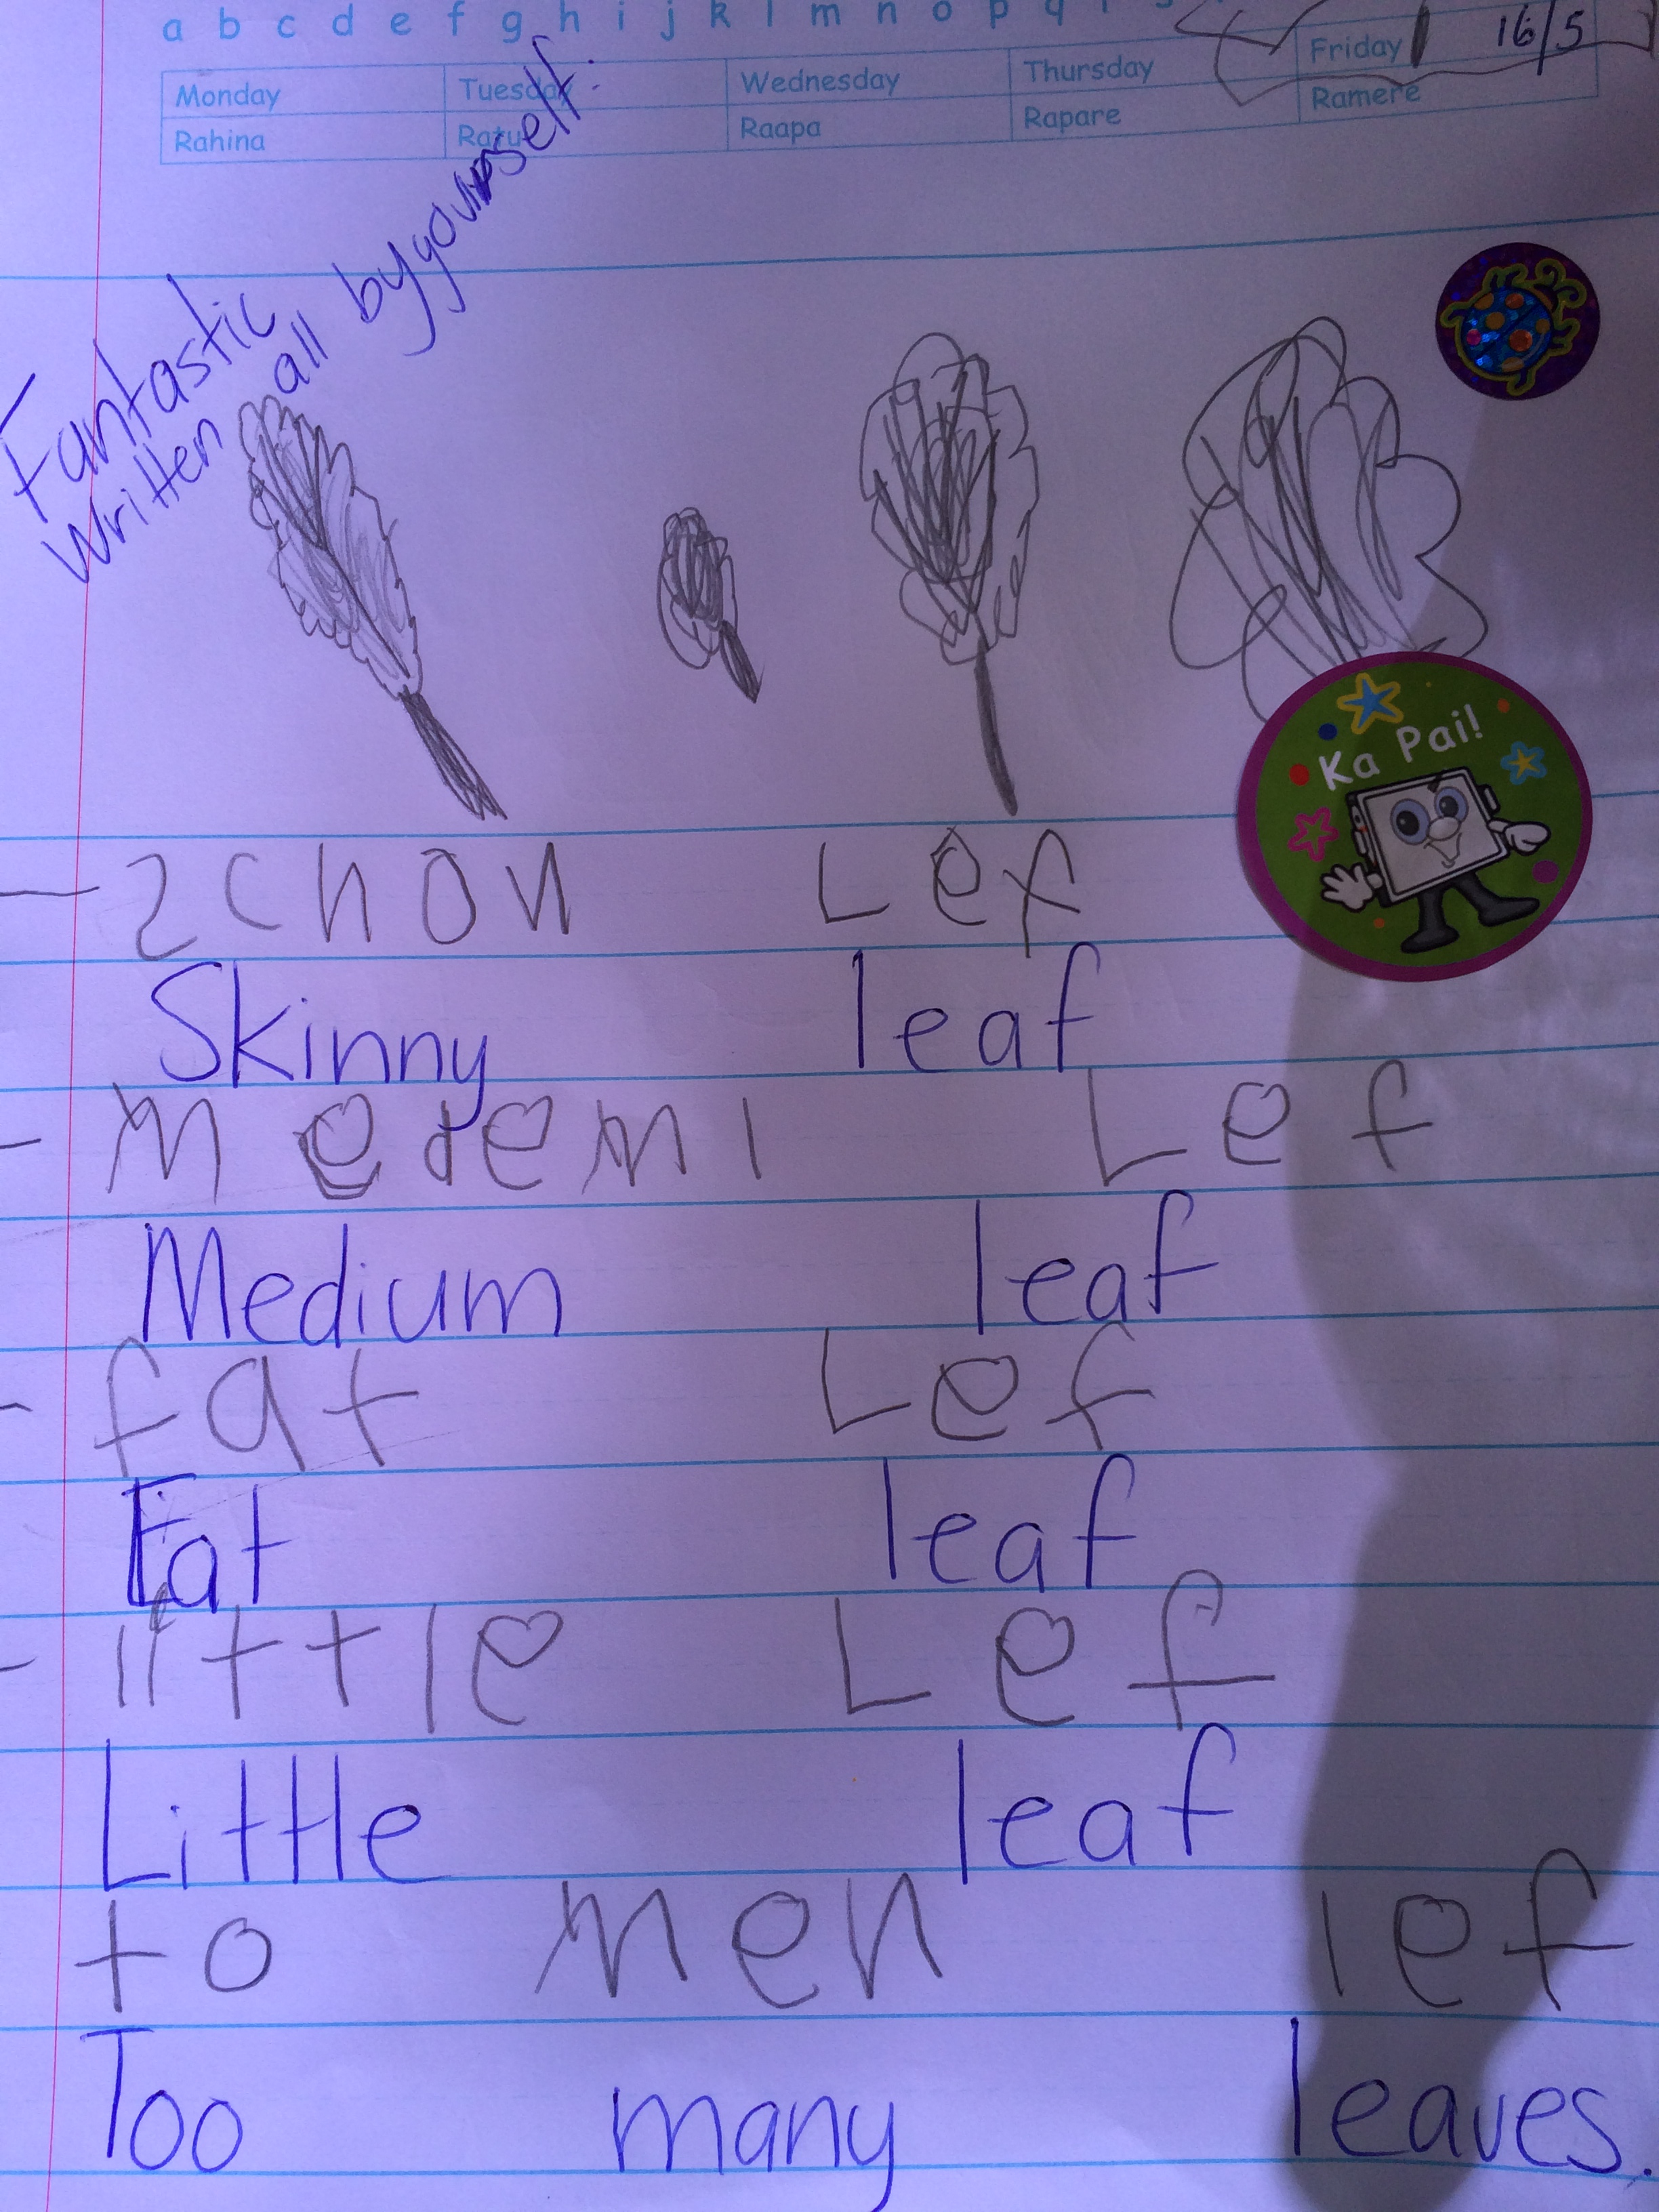 a b c d e f g h i j k l m n o p q
Monday Tuesday Wednesday Thursday Friday 16/5
Rahina Ratu Raapa Rapare Ramere
Fantastic
Written all by yourself.
Ka Pai!
schon Lef
Skinny leaf
medemi Lef
Medium leaf
fat Lef
Fat leaf
little Lef
Little leaf
to men lef
Too many leaves.